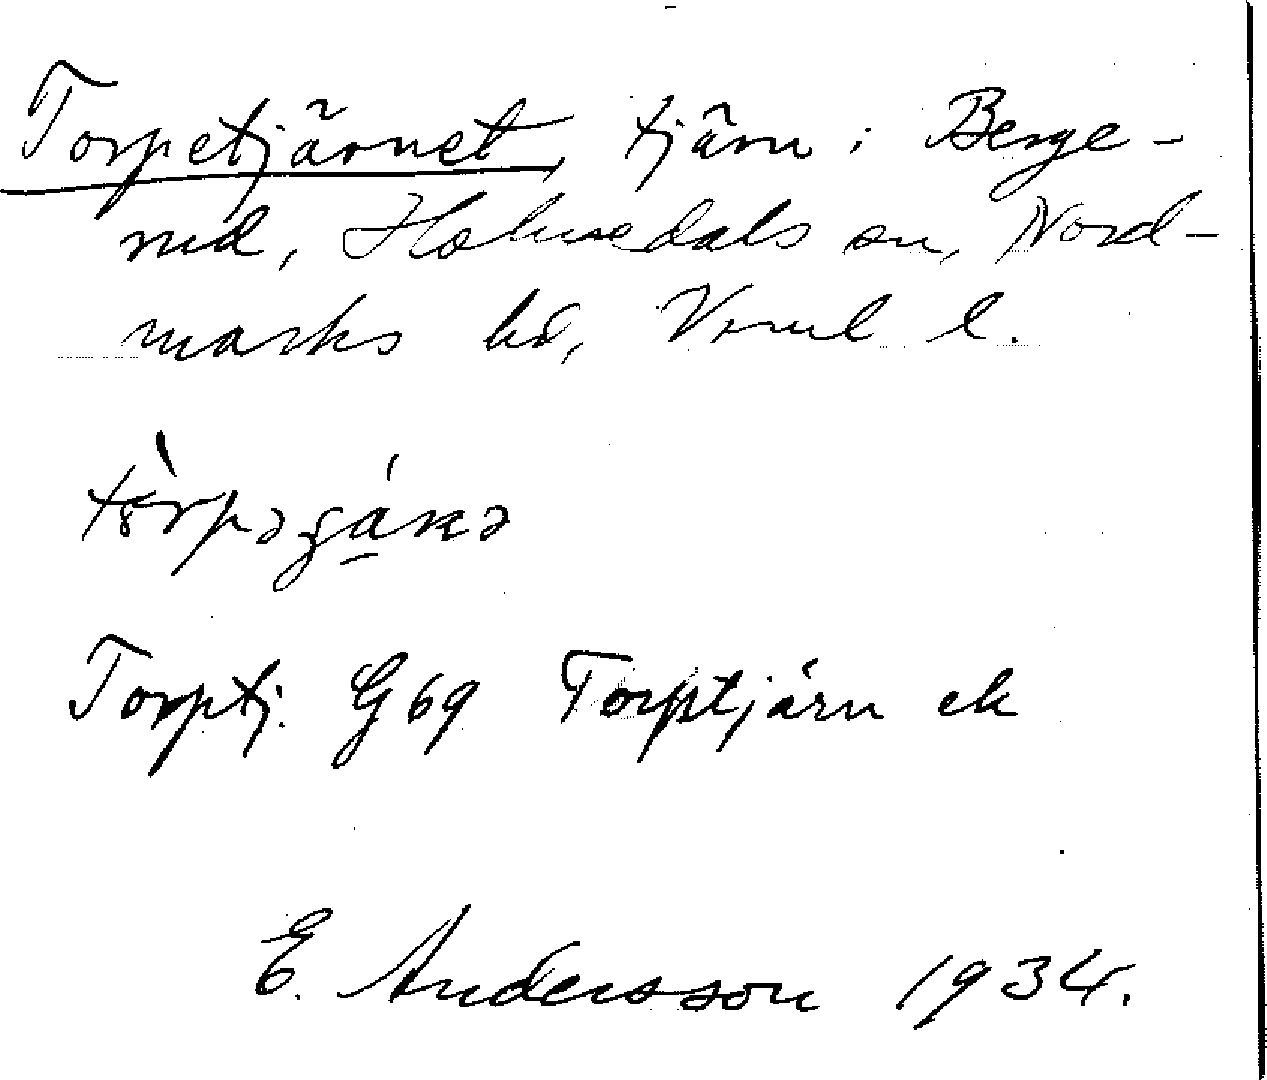 Torpetjärnet, tjärn i Berge-
rud, Holmedals sn, Nord-
marks hd, Verml l.
Torptj. G 69 Torptjärn ek
E. Andersson 1934.